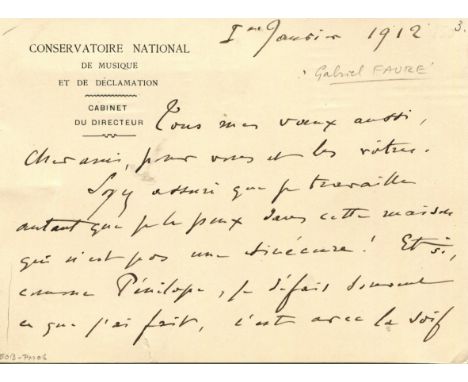 1er Janvier 1912
3.
CONSERVATOIRE NATIONAL
DE MUSIQUE
ET DE DÉCLAMATION
Gabriel FAURÉ
CABINET
DU DIRECTEUR
Tous mes vœux aussi,
cher ami, pour vous et les vôtres.
Soyez assuré que je travaille
autant que je le peux dans cette maison
qui n'est pas une sinécure! Et si,
comme Pénélope, je défais souvent
ce que j'ai fait, c'est avec la soif